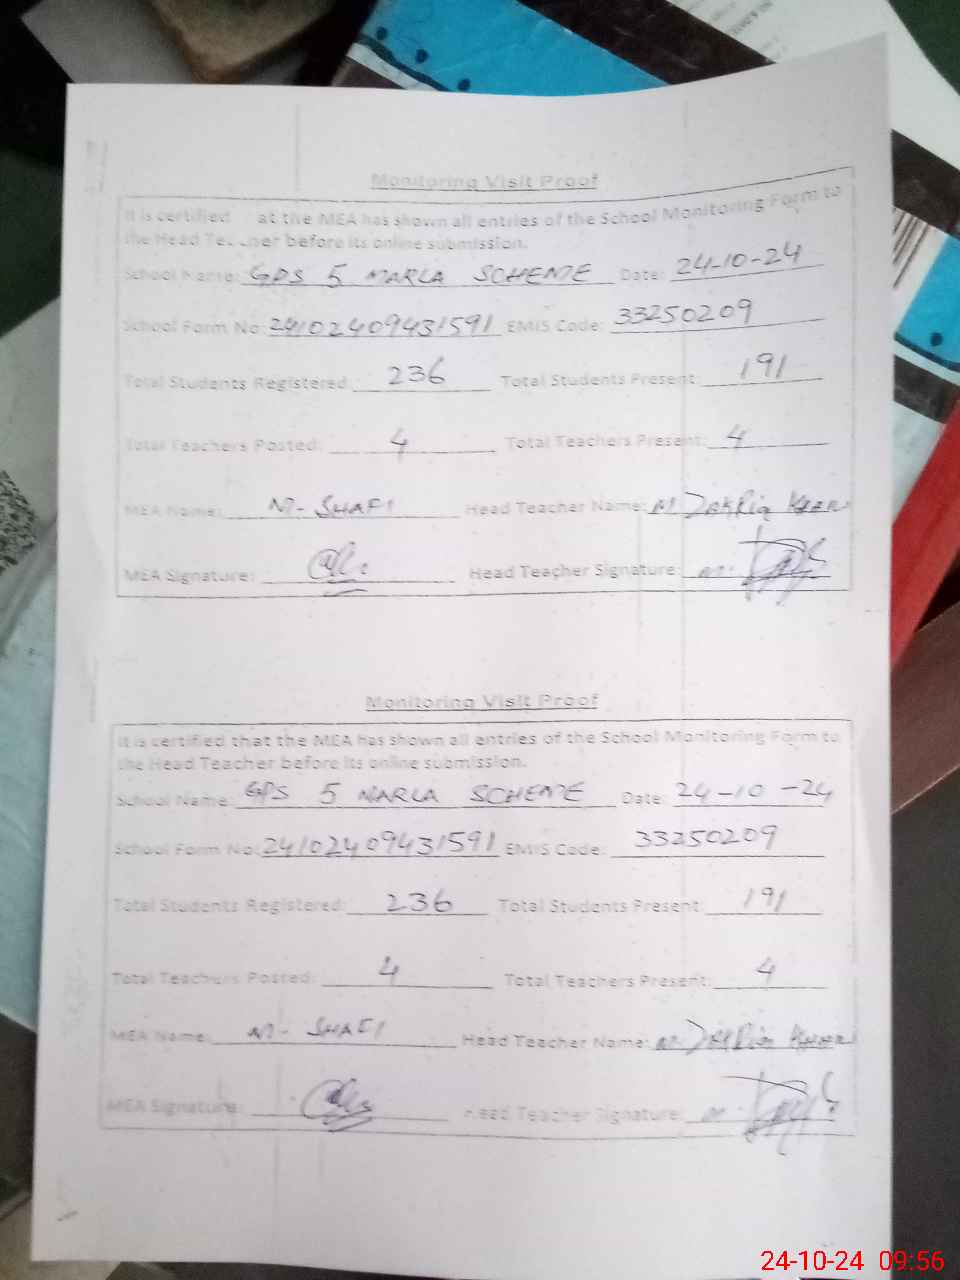 Monitoring Visit Proof
It is certified at the MEA has shown all entries of the School Monitoring Form to
the Head Teacher before its online submission.
School Name: GPS 5 MARLA SCHEME Date: 24-10-24
School Form No: 24102409431591 EMIS Code: 33250209
Total Students Registered: 236 Total Students Present: 191
Total Teachers Posted: 4 Total Teachers Present: 4
MEA Name: M- SHAFI Head Teacher Name: M. Zakria
MEA Signature: Head Teacher Signature:
Monitoring Visit Proof
It is certified that the MEA has shown all entries of the School Monitoring Form to
the Head Teacher before its online submission.
School Name: GPS 5 MARLA SCHEME Date: 24-10-24
School Form No: 24102409431591 EMIS Code: 33250209
Total Students Registered: 236 Total Students Present: 191
Total Teachers Posted: 4 Total Teachers Present: 4
MEA Name: M- SHAFI Head Teacher Name: M. Zakria
MEA Signature: Head Teacher Signature:
24-10-24 09:56